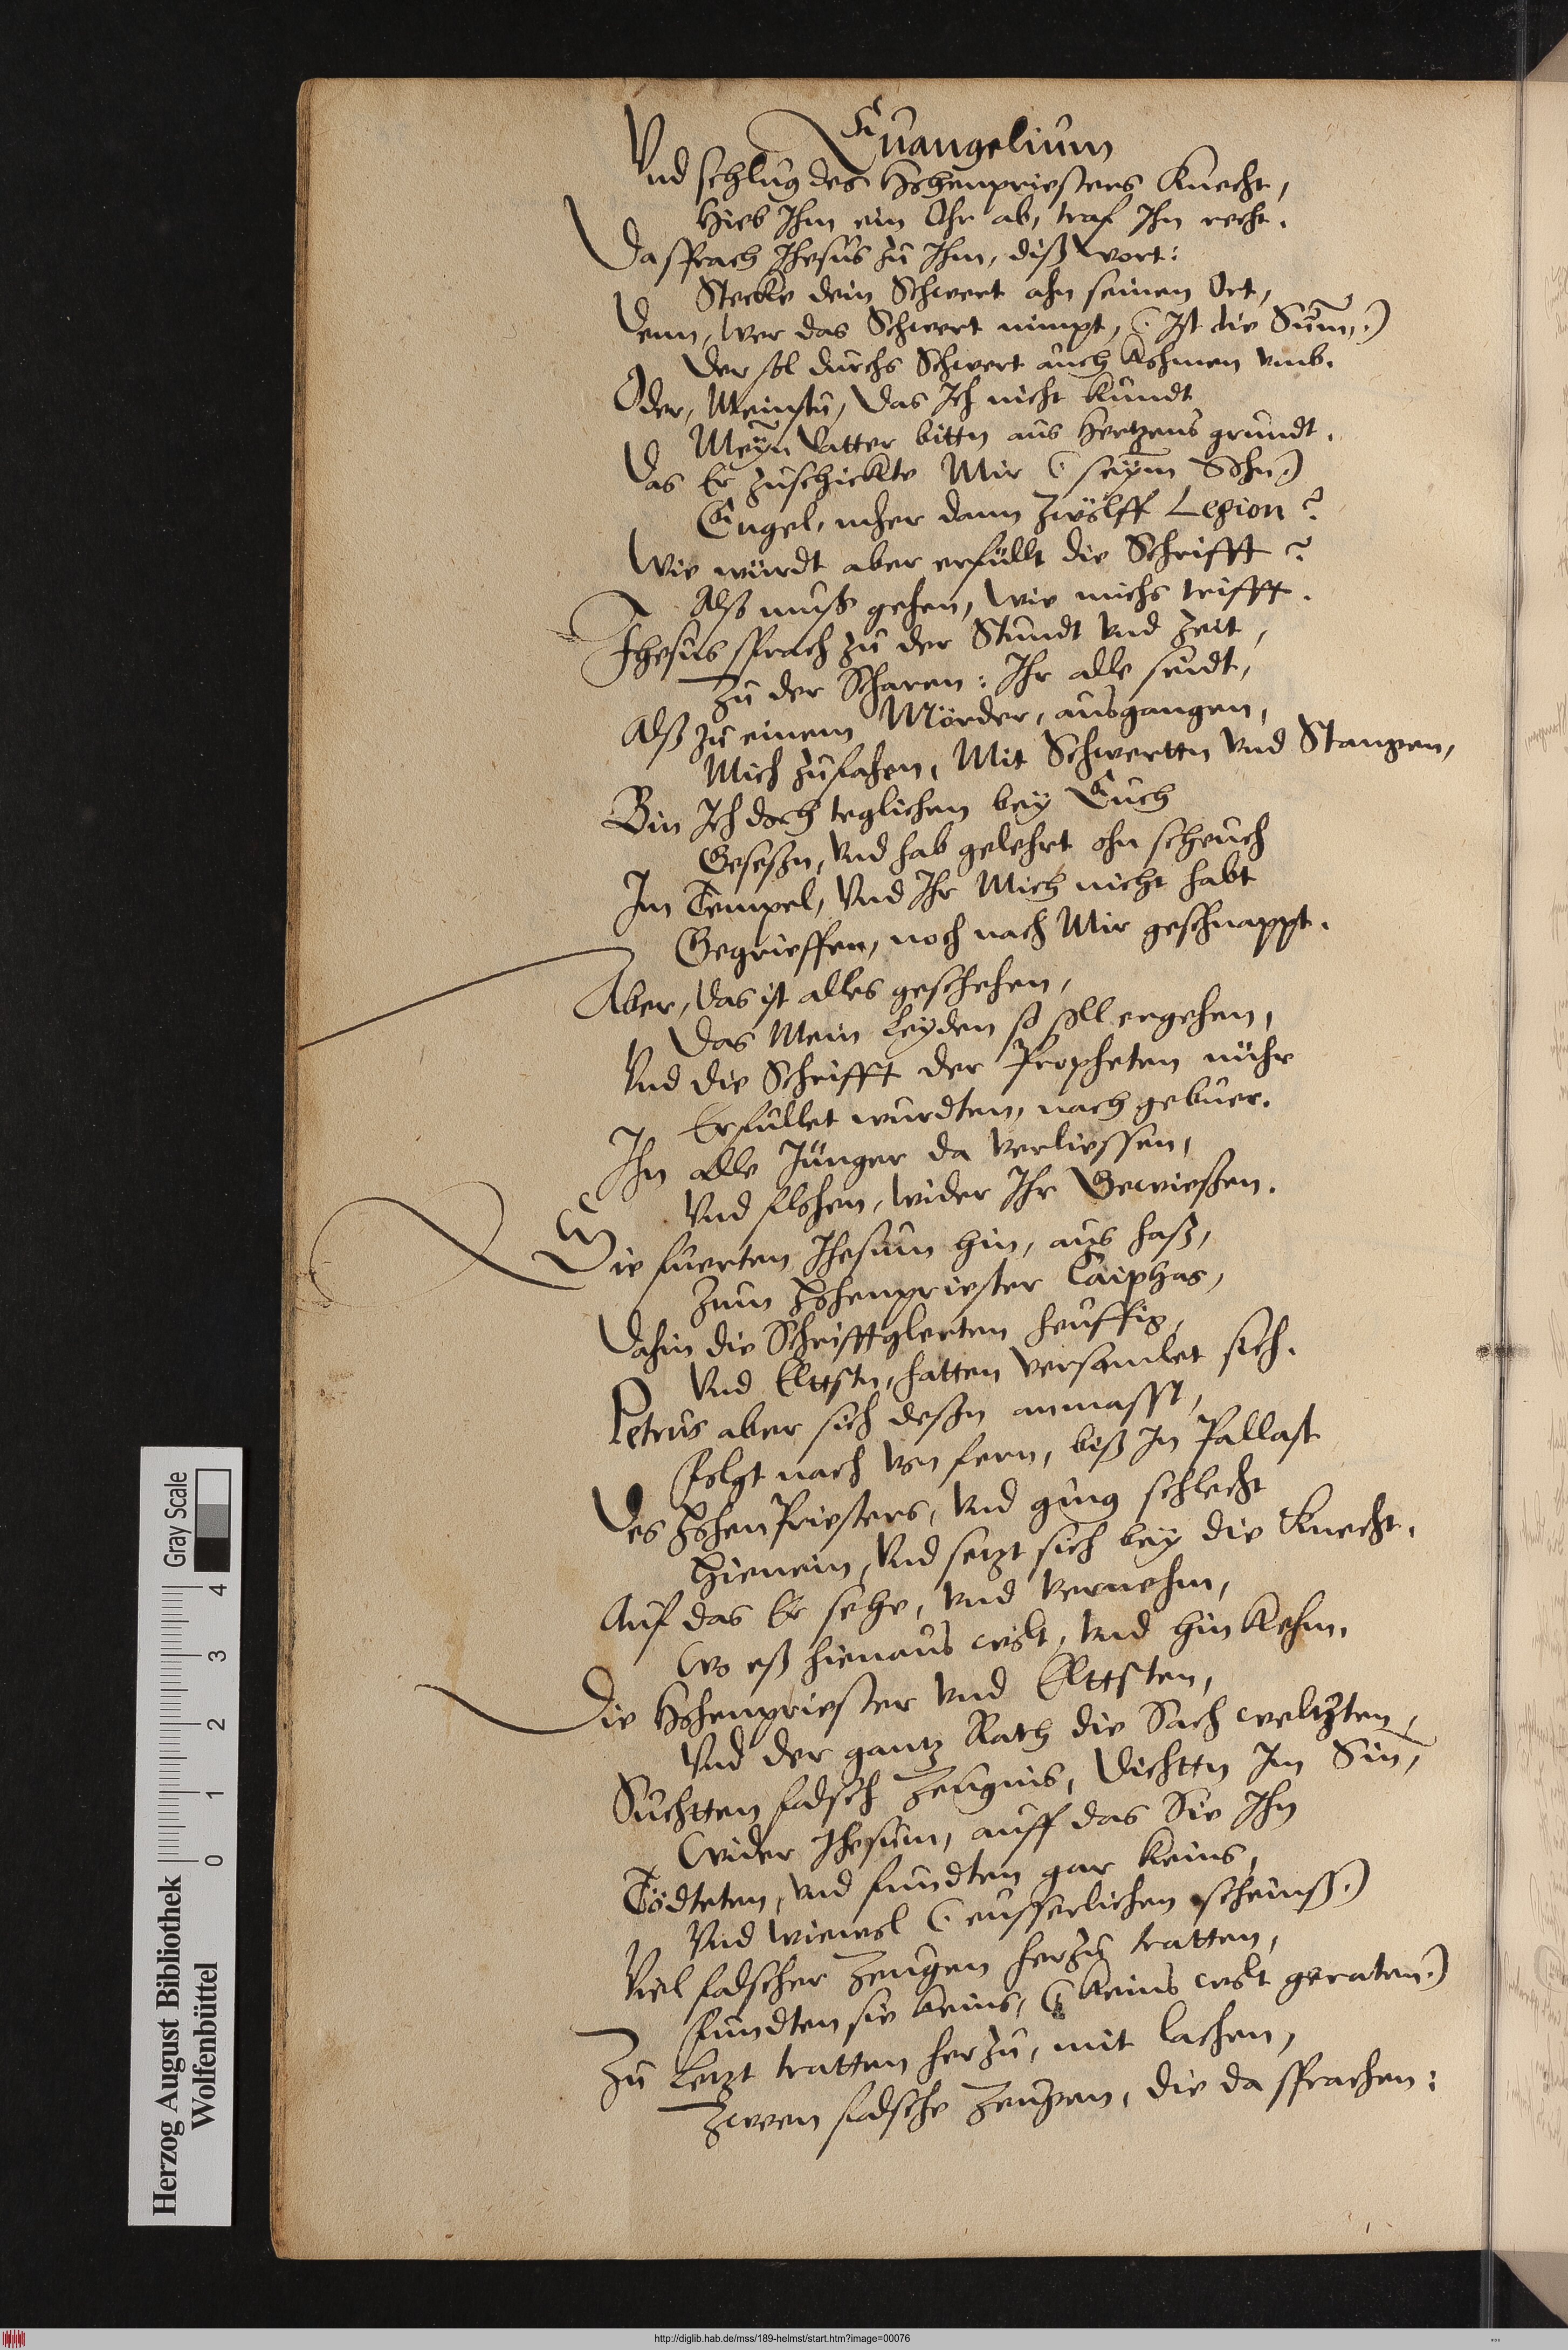 Euangelium
Vnd schlug des Hohenpriesters Knecht,
Hieb Ihm ein Ohr ab, traf Ihn recht.
Da sprach Ihesus zu Ihm, diß wort:
Stecke dein Schwert ahn seinen Ort,
Denn, wer das Schwert nimpt, (: Ist die Sum̄ :)
Der sol durchs Schwert auch kohmen vmb.
Oder, Meinstu, das Ich nicht kundt
Meÿn Vatter bittn aus Hertzens grundt.
Das Er zuschickte Mir (: seÿm Sohn)
Engel, meher dann zwölff Legion?
Wie würdt aber erfüllt die Schrifft?
Alß muß gehen, wie michs trifft.
Ihesus sprach zu der Stundt vnd Zeit,
Zu der Scharen: Ihr alle seidt,
Alß zu einem Mörder, ausgangen,
Mich zufahen, Mit Schwerttn vnd Stangen,
Bin Ich doch teglichen beÿ Euch
Geseßn, vnd hab gelehrt ohn scheuch
Im Tempel, Vnd Ihr Mich nicht habt
Gegrieffen, noch nach Mir geschnappt.
Aber, das ist alles geschehen,
Das Mein Leÿden so soll ergehen,
Vnd die Schrifft der Propheten nuhr
Erfullet wurdten, nach gebuer.
Ihn alle Jünger da verliessen,
Vnd flohen, wider Ihr Gewießen.
Sie fuerten Ihesum hin, aus haß,
Zum Hohenpriester Caiphas,
Dahin die Schrifftglerten heuffig,
Vnd Elttstn, hatten versamlet sich.
Petrus aber sich deßn anmasst,
Folgt nach von fern, biß In Pallast
Des HohenPriesters, Vnd ging schlecht
Hienein, Vnd setzt sich beÿ die Knecht.
Auf das Er sehe, vnd vernehm,
Wo eß hienaus wolt, vnd hin kehm.
Die Hohenpriester vnd Elttsten,
Vnd der gantz Rath die Sach weltzten,
Suchtten falsch Zeugnis, Dichttn Im Sin̄,
Wider Ihesum, auff das Sie Ihn
Tödteten, vnd fundten gar keins,
Vnd wiewol (: eusserlichen scheinß:)
Viel falscher Zeugen herzu tratten,
Fundten sie keins, (: keins wolt geraten:)
Zu Letzt tratten herzu, mit lachen,
Zween falsche Zeugen, die da sprachen:
Herzog August Bibliothek
Wolfenbüttel
0 1 2 3 4
Gray Scale
http://diglib.hab.de/mss/189-helmst/start.htm?image=00076